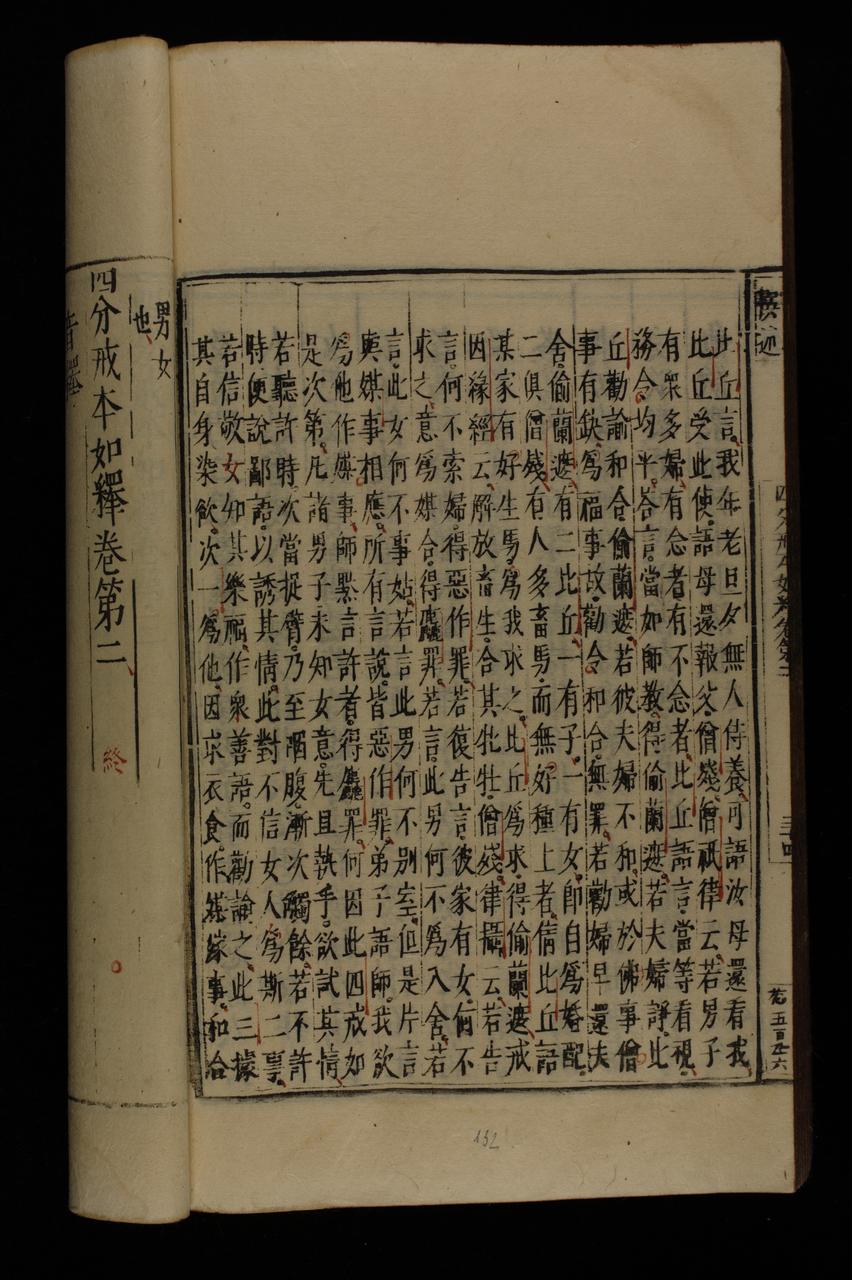 此丘言我年老旦夕無人侍養可語汝母還看我
比丘受此使語母還報父僧殘僧祇律云若男子
有衆多婦有念者有不念者比丘語言當等看視
務令均平答言當如師教得偷蘭遮若夫婦諍此
丘勸諭和合偷蘭遮若彼夫婦不和或於佛事僧
事有缺為福事故勸令和合無罪若勸婦早還夫
舍偷蘭遮有二比丘一有子一有女即自為婚配
二俱僧殘有人多畜馬而無好種上者倩比丘語
某家有好生馬為我求之比丘為求得偷蘭遮戒
因緣經云解放畜生合其牝牡僧殘律攝云若告
言何不索婦得惡作罪若復告言彼家有女何不
求之意為媒合得麤罪若言此男何不為入舍若
言此女何不事姑若言此男何不別室但是片言
與媒事相應所有言說皆惡作罪弟子語師我欲
為他作媒事師黙言許者得麤罪何因此四戒如
是次第凡諸男子未知女意先且執手欲試其情
若聽許時次當捉臂乃至𦜝腹漸次觸餘若不許
時便說鄙語以誘其情此對不信女人為斯二事
若信敬女如其樂福作衆善語而勸諭之此三據
其自身染飲次一為他因求衣食作媒嫁事和合
男女
也
四分戒本如釋卷第二
終
音釋
三十四
苑五百五六
132